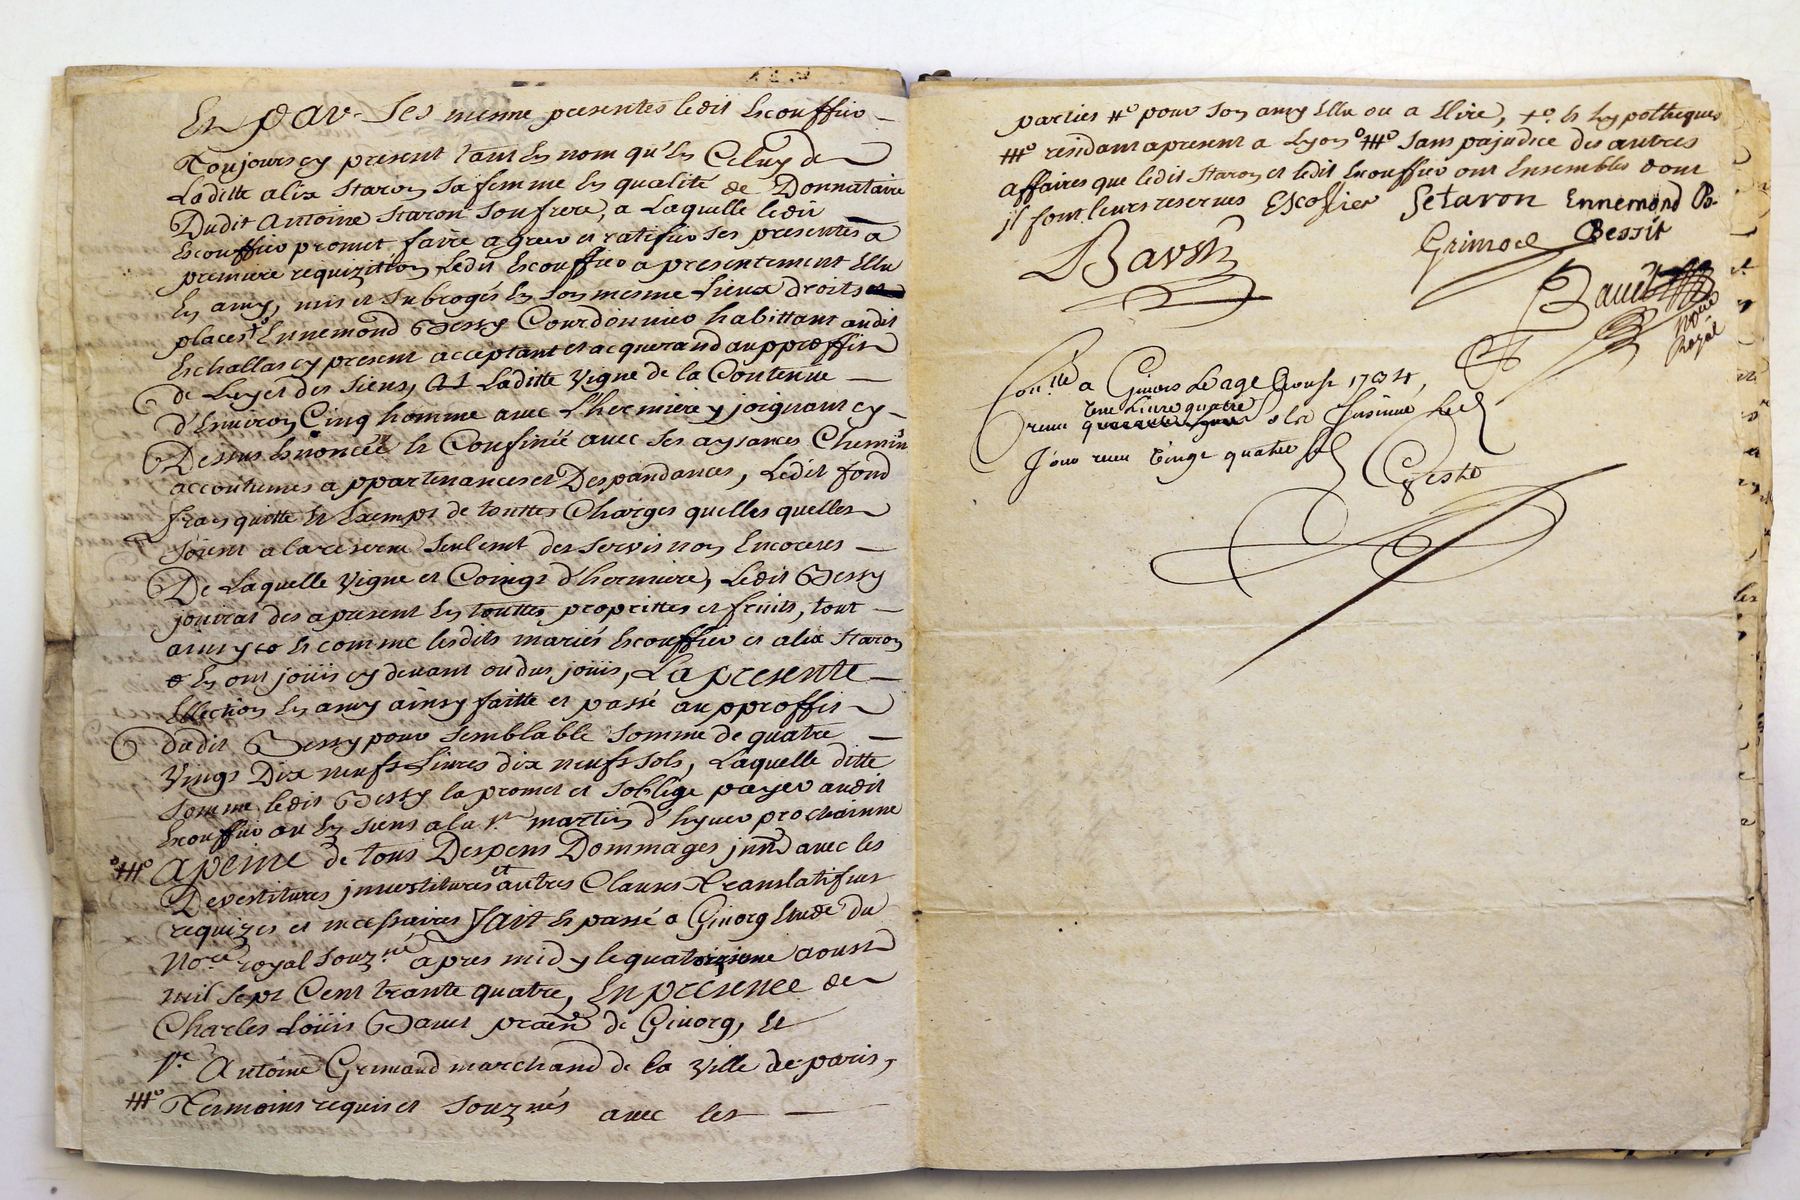 Et par ses mesme presentes ledit Escouffier
Toujours cy present tant en nom qu'en Celuy de
Laditte alix Staron sa femme en qualité de Donnataire
Dudit Antoine Staron son frere, a Laquelle ledit
Escouffier promet faire agreer et ratifier ses presentes a
premiere requizition, Ledit Escouffier a presentement Ellu
En amy, mis et subrogés En son mesme Lieux droits
places #o Ennemond Bessy Courdonnier habittant audit
Eschallas cy present acceptant et acquerand au proffit
de Luy et des siens, Laditte Vigne de la Contenüe
d'Environ Cinq homme avec L'hermiere y joignant cy
Dessus Enoncée et Confinée avec ses aysances Chemins
accoutumes appartenances et Despandances, Ledit fond
franquitte et Exempt de touttes Charges quelles quelles
soient a la reserve seulemt des servis non Encourus
De Laquelle Vigne et Coings d'hermiere, Ledit Bessy
jouirat des apresent En touttes proprittes et fruits, tout
ainsy et comme lesdits mariés Escouffier et alix Staron
En ont joüis cy devant ou dus joüis, La presente
Ellection En amy ainsy faitte et passé au proffit
dudit Bessy pour semblable somme de quatre
Vings Dix neufs Livres dix neufs sols, Laquelle ditte
somme ledit Bessy la promet et soblige payer audit
Escouffier ou Es siens a la st martin d'hyver prochainne
o###o apeine de tous Despens Dommages jnnd avec les
Devestitures jnvestitures et autres Clauses Translatifves
requizes et necessaires fait et passé a Givorg Etude du
Nore royal souzné apres midy le quatorzieme aoust
mil sept Cent trante quatre, En presence de
Charles Loüis Bauet de Givorg, Et
sr Antoine Grimaud marchand de la Ville de paris,
###o Tesmoins requis et souznés avec les
parties #o pour son amy Ellu ou a Elire, +o Es hypotheques
###o residant apresent a Lyon o###o sans prejudice des autres
affaires que ledit Staron et ledit Escouffier ont Ensembles dont
jl font leurs reserves Escoffier Setaron Ennemond Be-
Bessit
Grimod
Bavet
Bauet
Nore
Royal
Conllé a Givors Le age Aoust 1734,
receu une Livre quatre s Et Insinué Led
Jour receu vingt quatre s
Geste